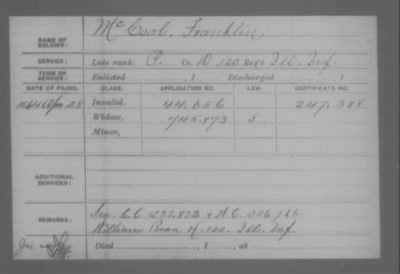 NAME OF SOLDIER: McCool, Franklin,
SERVICE: Late rank, P. Co. D, 120 Reg't Ill. Inf.
TERM OF SERVICE: Enlisted , 1 Discharged , 1
DATE OF FILING. CLASS. APPLICATION NO. LAW. CERTIFICATE NO.
Apr 28 Invalid, 44.656 247.388
Widow, 745.873 S
Minor,
ADDITIONAL SERVICES:
REMARKS: C.C.
William K. 120. Ill. Inf.
Died , 1 , at